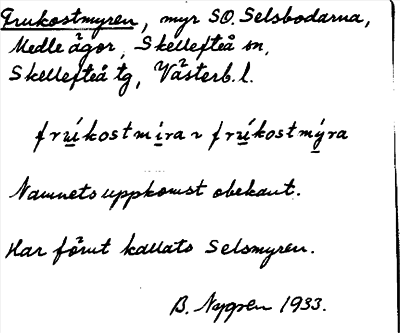 Frukostmyren, myr SO. Selsbodarna,
Medle ägor, Skellefteå sn,
Skellefteå tg, Västerb. l.
frúkostmira ~ frúkostmýra
Namnets uppkomst obekant.
Har förut kallats Selsmyren.
B. Nygren 1933.